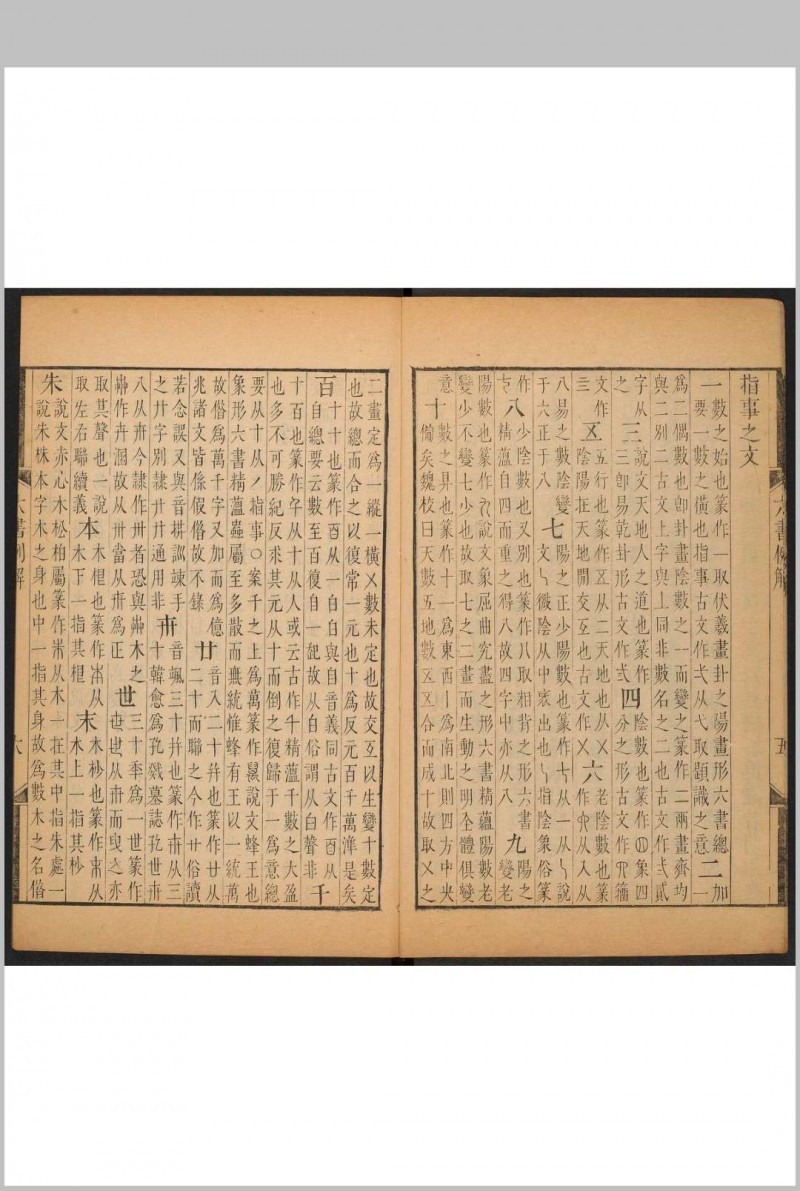 指事之文
一
數之始也篆作一取伏羲畫卦之陽畫形六書總
要一數之橫也指事古文作弌从弋取題識之意
二
加
一
為二偶數也卽卦畫陰數之一而變之篆作二兩畫齊均
與二別二古文上字與丄同非數名之二也古文作弍貳
字从
之
三
說文天地人之道也篆作
三卽易乾卦形古文作弎
四
陰數也篆作四象四
分之形古文作𦉭籀
文作
亖
五
五行也篆作五从二天地也从乂
陰陽在天地間交互也古文作乂
六
老陰數也篆
作六从入从
八易之數陰變
于六正于八
七
陽之正少陽數也篆作七从一从㇂說
文㇂微陰从中衺出也㇂指陰象俗篆
作
㐂
八
少陰數也又別也篆作八取相背之形六書
精蘊自四而重之得八故四字中亦从八
九
陽之
變老
陽數也篆作九說文象屈曲究盡之形六書精蘊陽數老
變少不變七少也故取七之二畫而生動之明全體俱變
意
十
數之具也篆作十一為東西丨為南北則四方中央
備矣魏校曰天數五地數五五合而成十故取乂之
六書例解
五
二畫定為一縱一橫乂數未定也故交互以生變十數定
也故總而合之以復常一元也十為反元百千萬準是矣
百
十十也篆作百从一白白與自音義同古文作百从
自總要云數至百復自一起故从自俗謂从白聲非
千
十百也篆作千从十从人或云古作千精蘊千數之大盈
也多不可勝紀反求其元从十而倒之復歸于一為意總
要从十从丿指事○案千之上為萬篆作萬說文蜂王也
象形六書精蘊蟲屬至多散而無統惟蜂有王以一統萬
故借為萬千字又加而為億
兆諸文皆係假借故不錄
廿
音入二十并也篆作廿从
二十而聯之今作廿俗讀
若念誤又與音拱訟竦手
之廾字別隸廾廾通用非
卅
音颯三十并也篆作卅从三
十韓愈為孔戣墓誌孔世卅
八从卅今隸作卅者恐與艸木之
艸作卉溷故从卅當从卅為正
世
三十秊為一世篆作
世丗从卅而曳之亦
取其聲也一說
取左右聯續義
本
木柢也篆作本从
木下一指其柢
末
木杪也篆作末从
木上一指其杪
朱
說文赤心木松柏屬篆作朱从木一在其中指朱處一
說朱株本字木之身也中一指其身故為數木之名借
六書例解
六